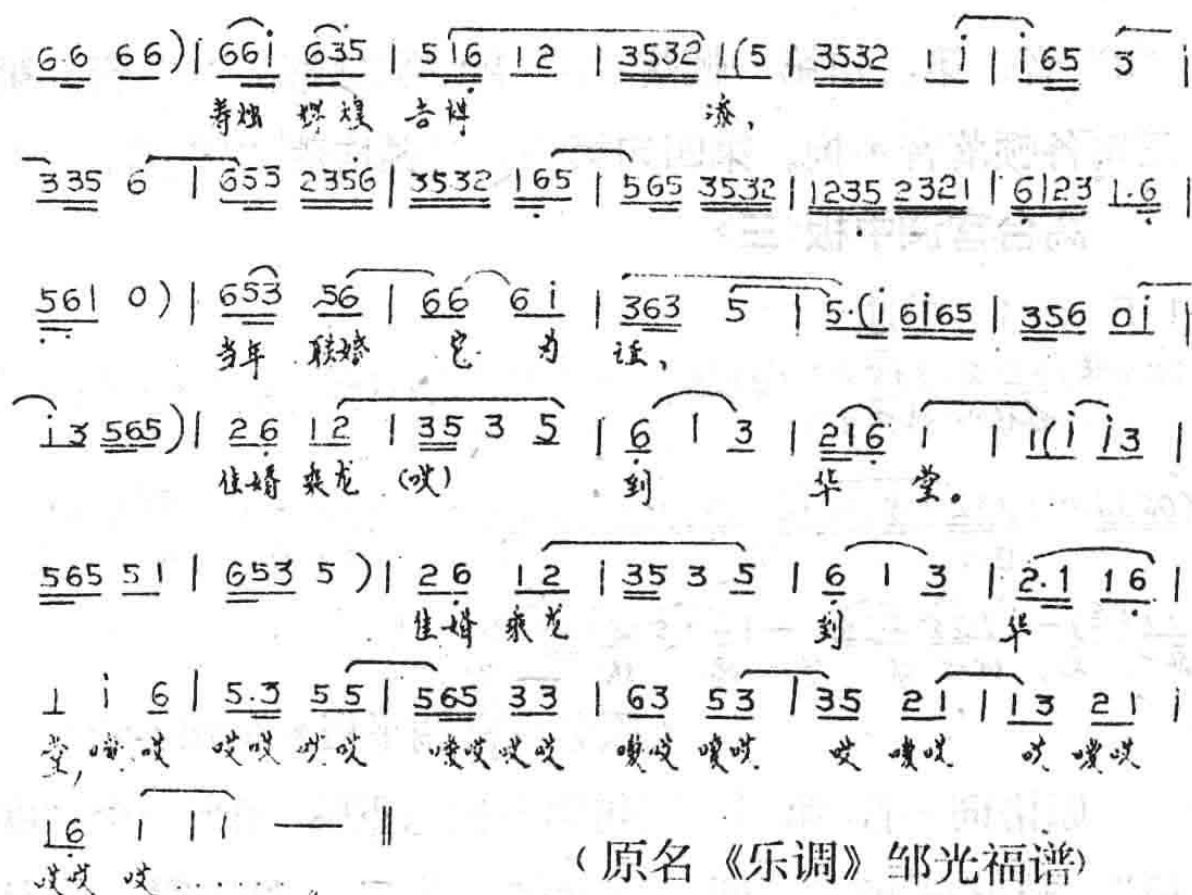 66 66)|661̇ 635|516 12|3532|(5|3532 11̇|1̇65 3 1̇
寿烛 辉煌 吉祥 漆,
335 6|653 2356|3532 165|565 3532|1235 2321|6123 1·6|
561 0)|653 56|66 61̇|363 5|5·(1̇ 61̇65|356 01̇|
当年 联婚 它 为 证,
1̇3 565)|26 12|35 3 5|6 1 3|216 1|1(1̇ 1̇3|
佳婿 乘龙 (哎) 到 华 堂。
565 51|653 5)|26 12|35 3 5|6 1 3|2·1 16|
佳婿 乘龙 到 华
1 1̇ 6|5·3 55|565 33|63 53|35 21|13 21|
堂, 哎 哎哎 哎哎 哎哎哎 哎 哎 哎 哎 哎 哎
16 1 1 1 — ‖
哎哎 哎......
(原名《乐调》邹光福谱)